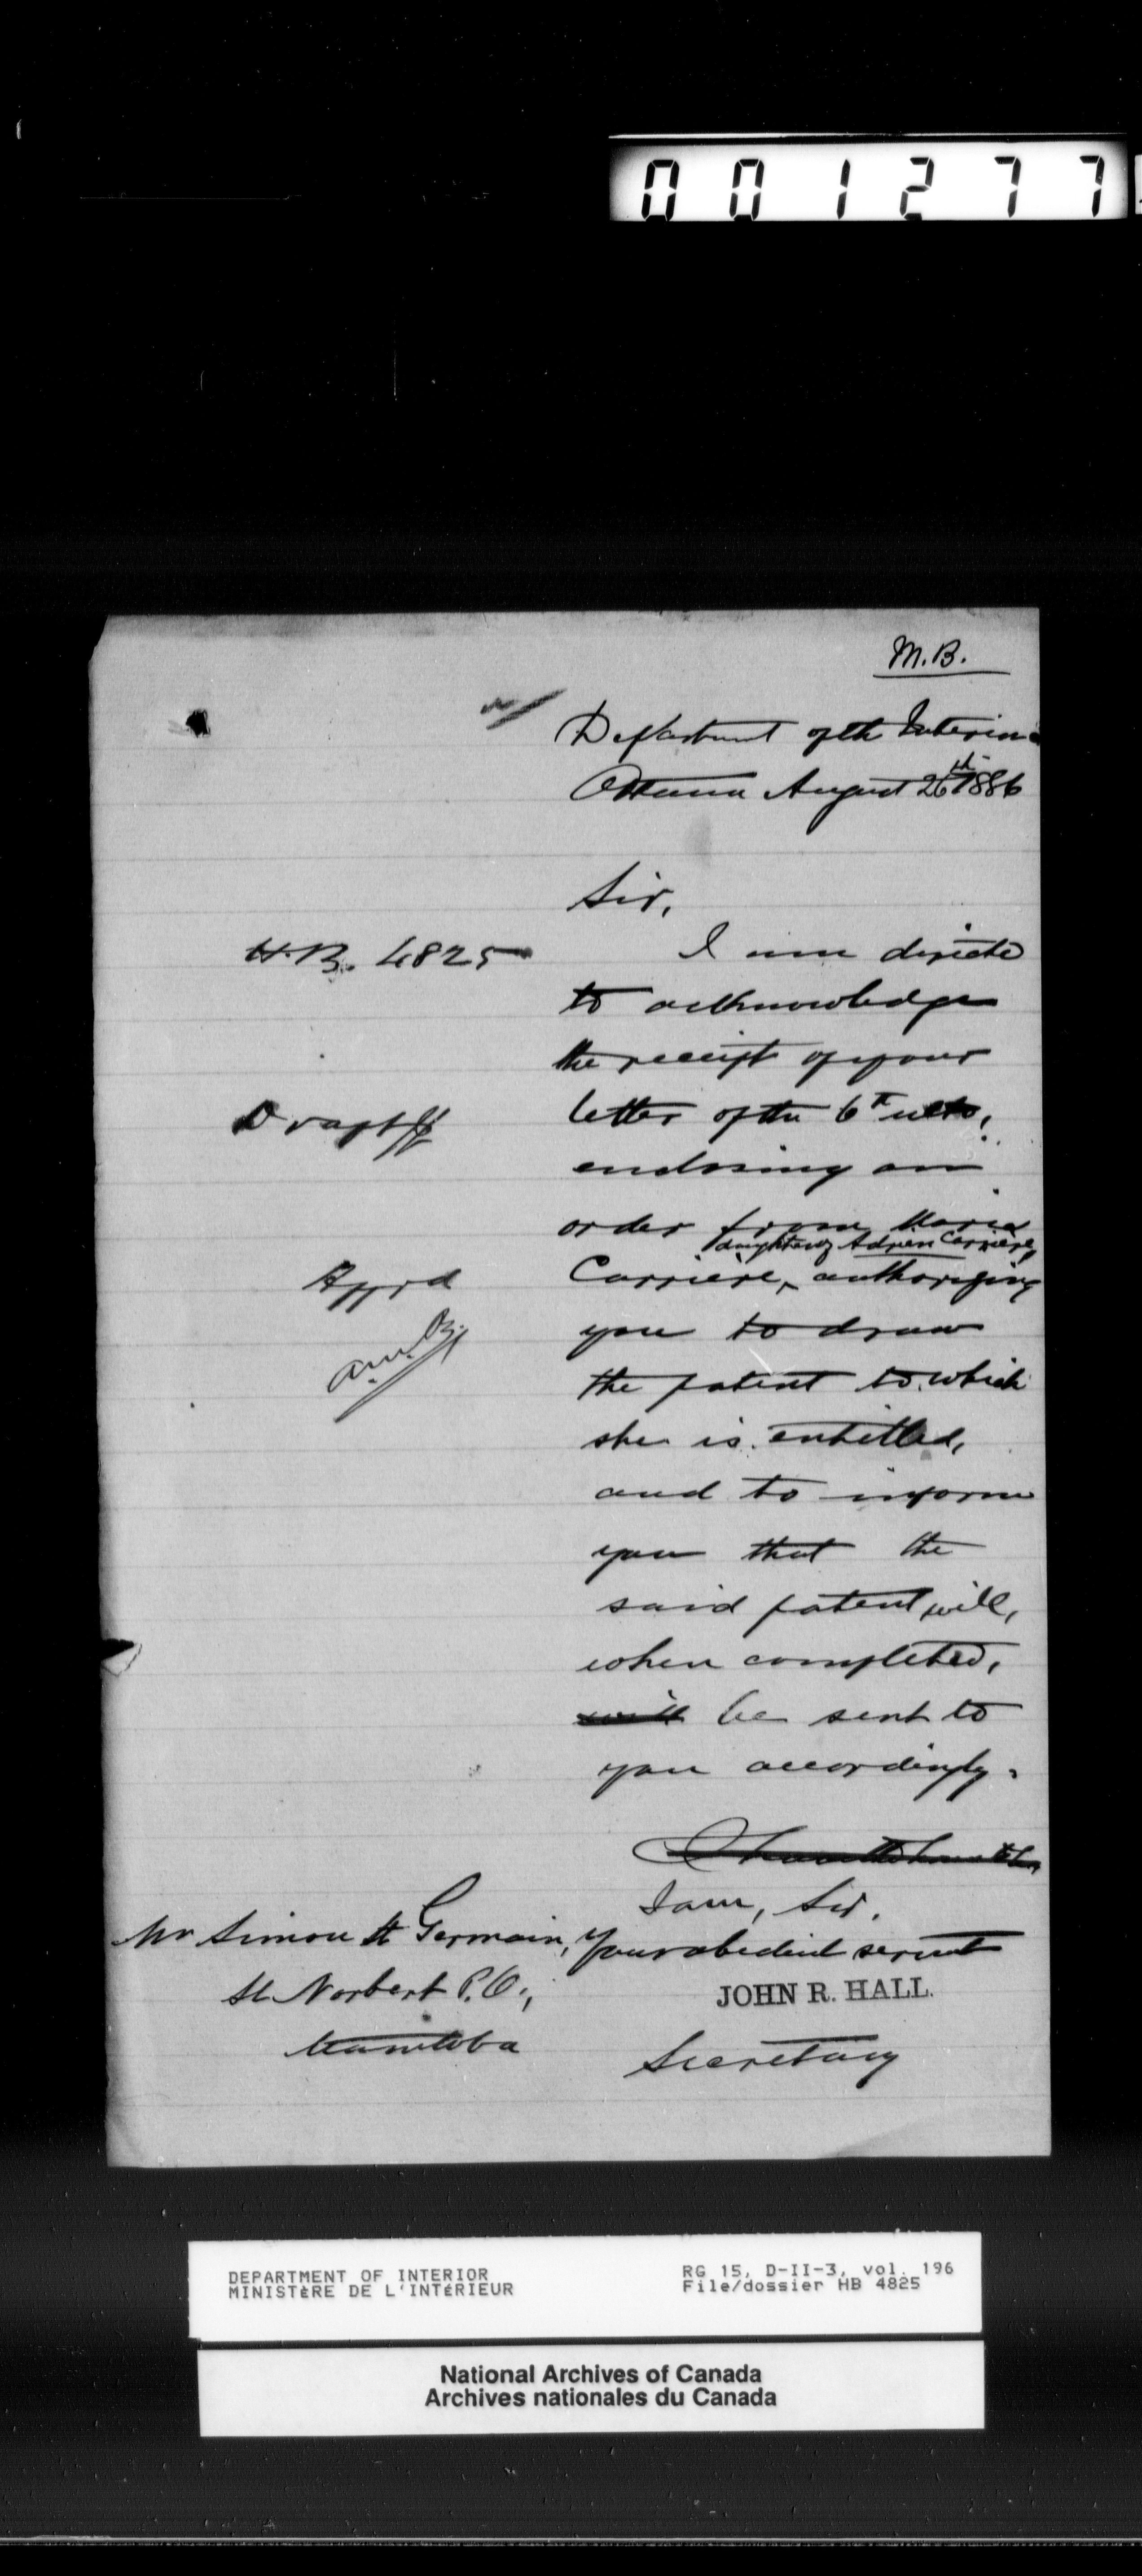 001277
M.B.
Department of the Interior
Ottawa August 26th 1886
Sir,
H.B. 4825
I am directed
to acknowledge
the receipt of your
Draft
letter of the 6th ulto,
enclosing an
order from Maria
daughter of Adrien Carrière,
Apprd
Carrière, authorizing
A.M.B.
you to draw
the patent to which
she is entitled,
and to inform
you that the
said patent will,
when completed,
will be sent to
you accordingly.
I am, Sir,
Mr Simon St Germain,
Your obedient servant
St Norbert P.O.,
JOHN R. HALL.
Manitoba
Secretary
DEPARTMENT OF INTERIOR
MINISTÈRE DE L'INTÉRIEUR
RG 15, D-II-3, vol. 196
File/dossier HB 4825
National Archives of Canada
Archives nationales du Canada